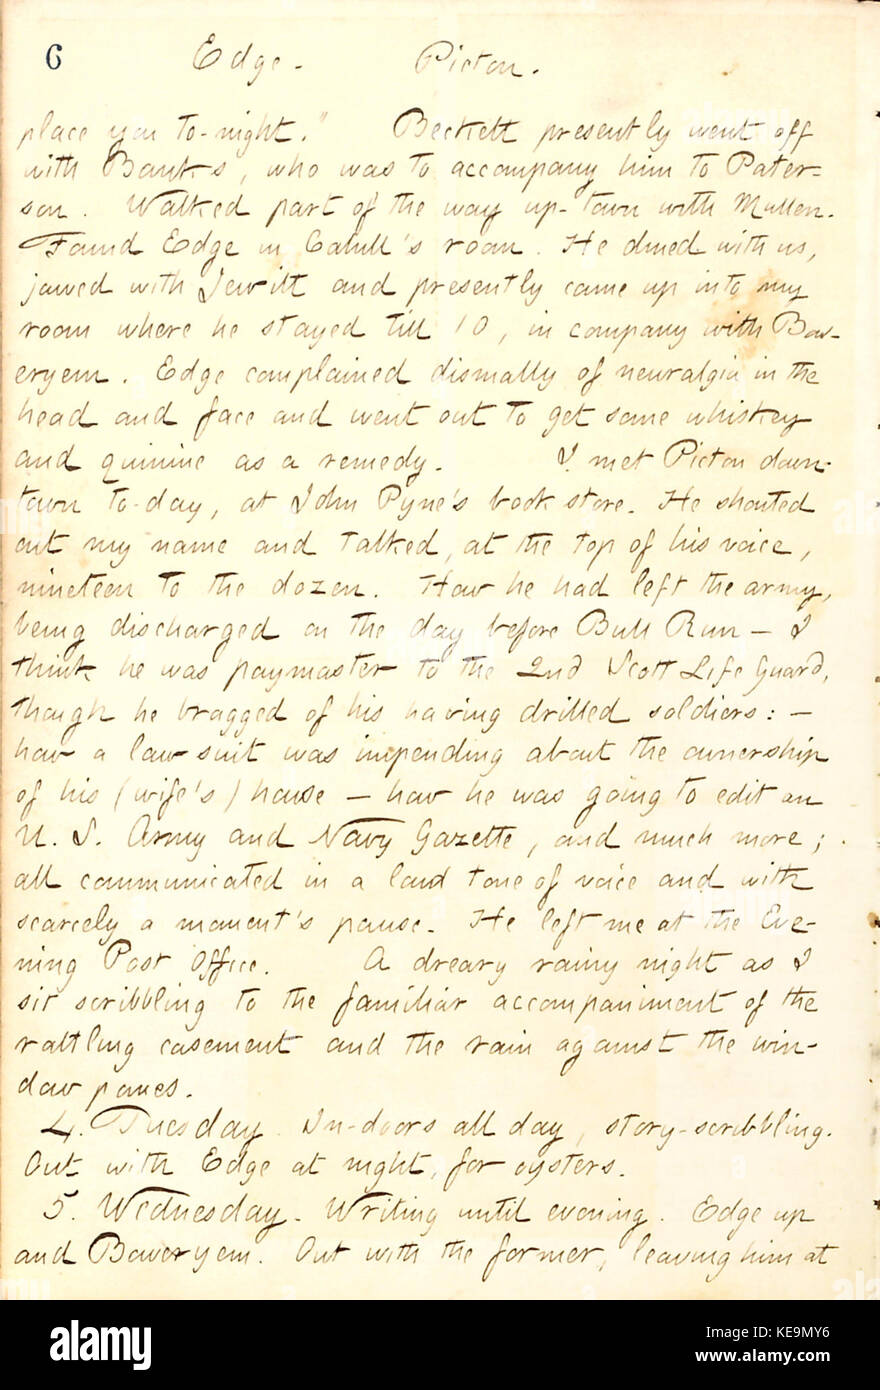 6 Edge. Picton.
place you to-night." Beckett presently went off
with Banks, who was to accompany him to Pater-
son. Walked part of the way up-town with Mullen.
Found Edge in Cahill's room. He dined with us,
jawed with Jewitt and presently came up into my
room where he stayed till 10, in company with Bow-
eryem. Edge complained dismally of neuralgia in the
head and face and went out to get some whiskey
and quinine as a remedy. I met Picton down-
town to-day, at John Pyne's book store. He shouted
out my name and talked, at the top of his voice,
nineteen to the dozen. How he had left the army,
being discharged on the day before Bull Run — I
think he was paymaster to the 2nd Scott Life Guard,
though he bragged of his having drilled soldiers: —
how a law suit was impending about the ownership
of his (wife's) house — how he was going to edit an
U. S. Army and Navy Gazette, and much more;
all communicated in a loud tone of voice and with
scarcely a moment's pause. He left me at the Eve-
ning Post Office. A dreary rainy night as I
sit scribbling to the familiar accompaniment of the
rattling casement and the rain against the win-
dow panes.
4. Tuesday. In-doors all day, story-scribbling.
Out with Edge at night, for oysters.
5. Wednesday. Writing until evening. Edge up
and Boweryem. Out with the former, leaving him at
alamy
Image ID: KE9MY6
www.alamy.com